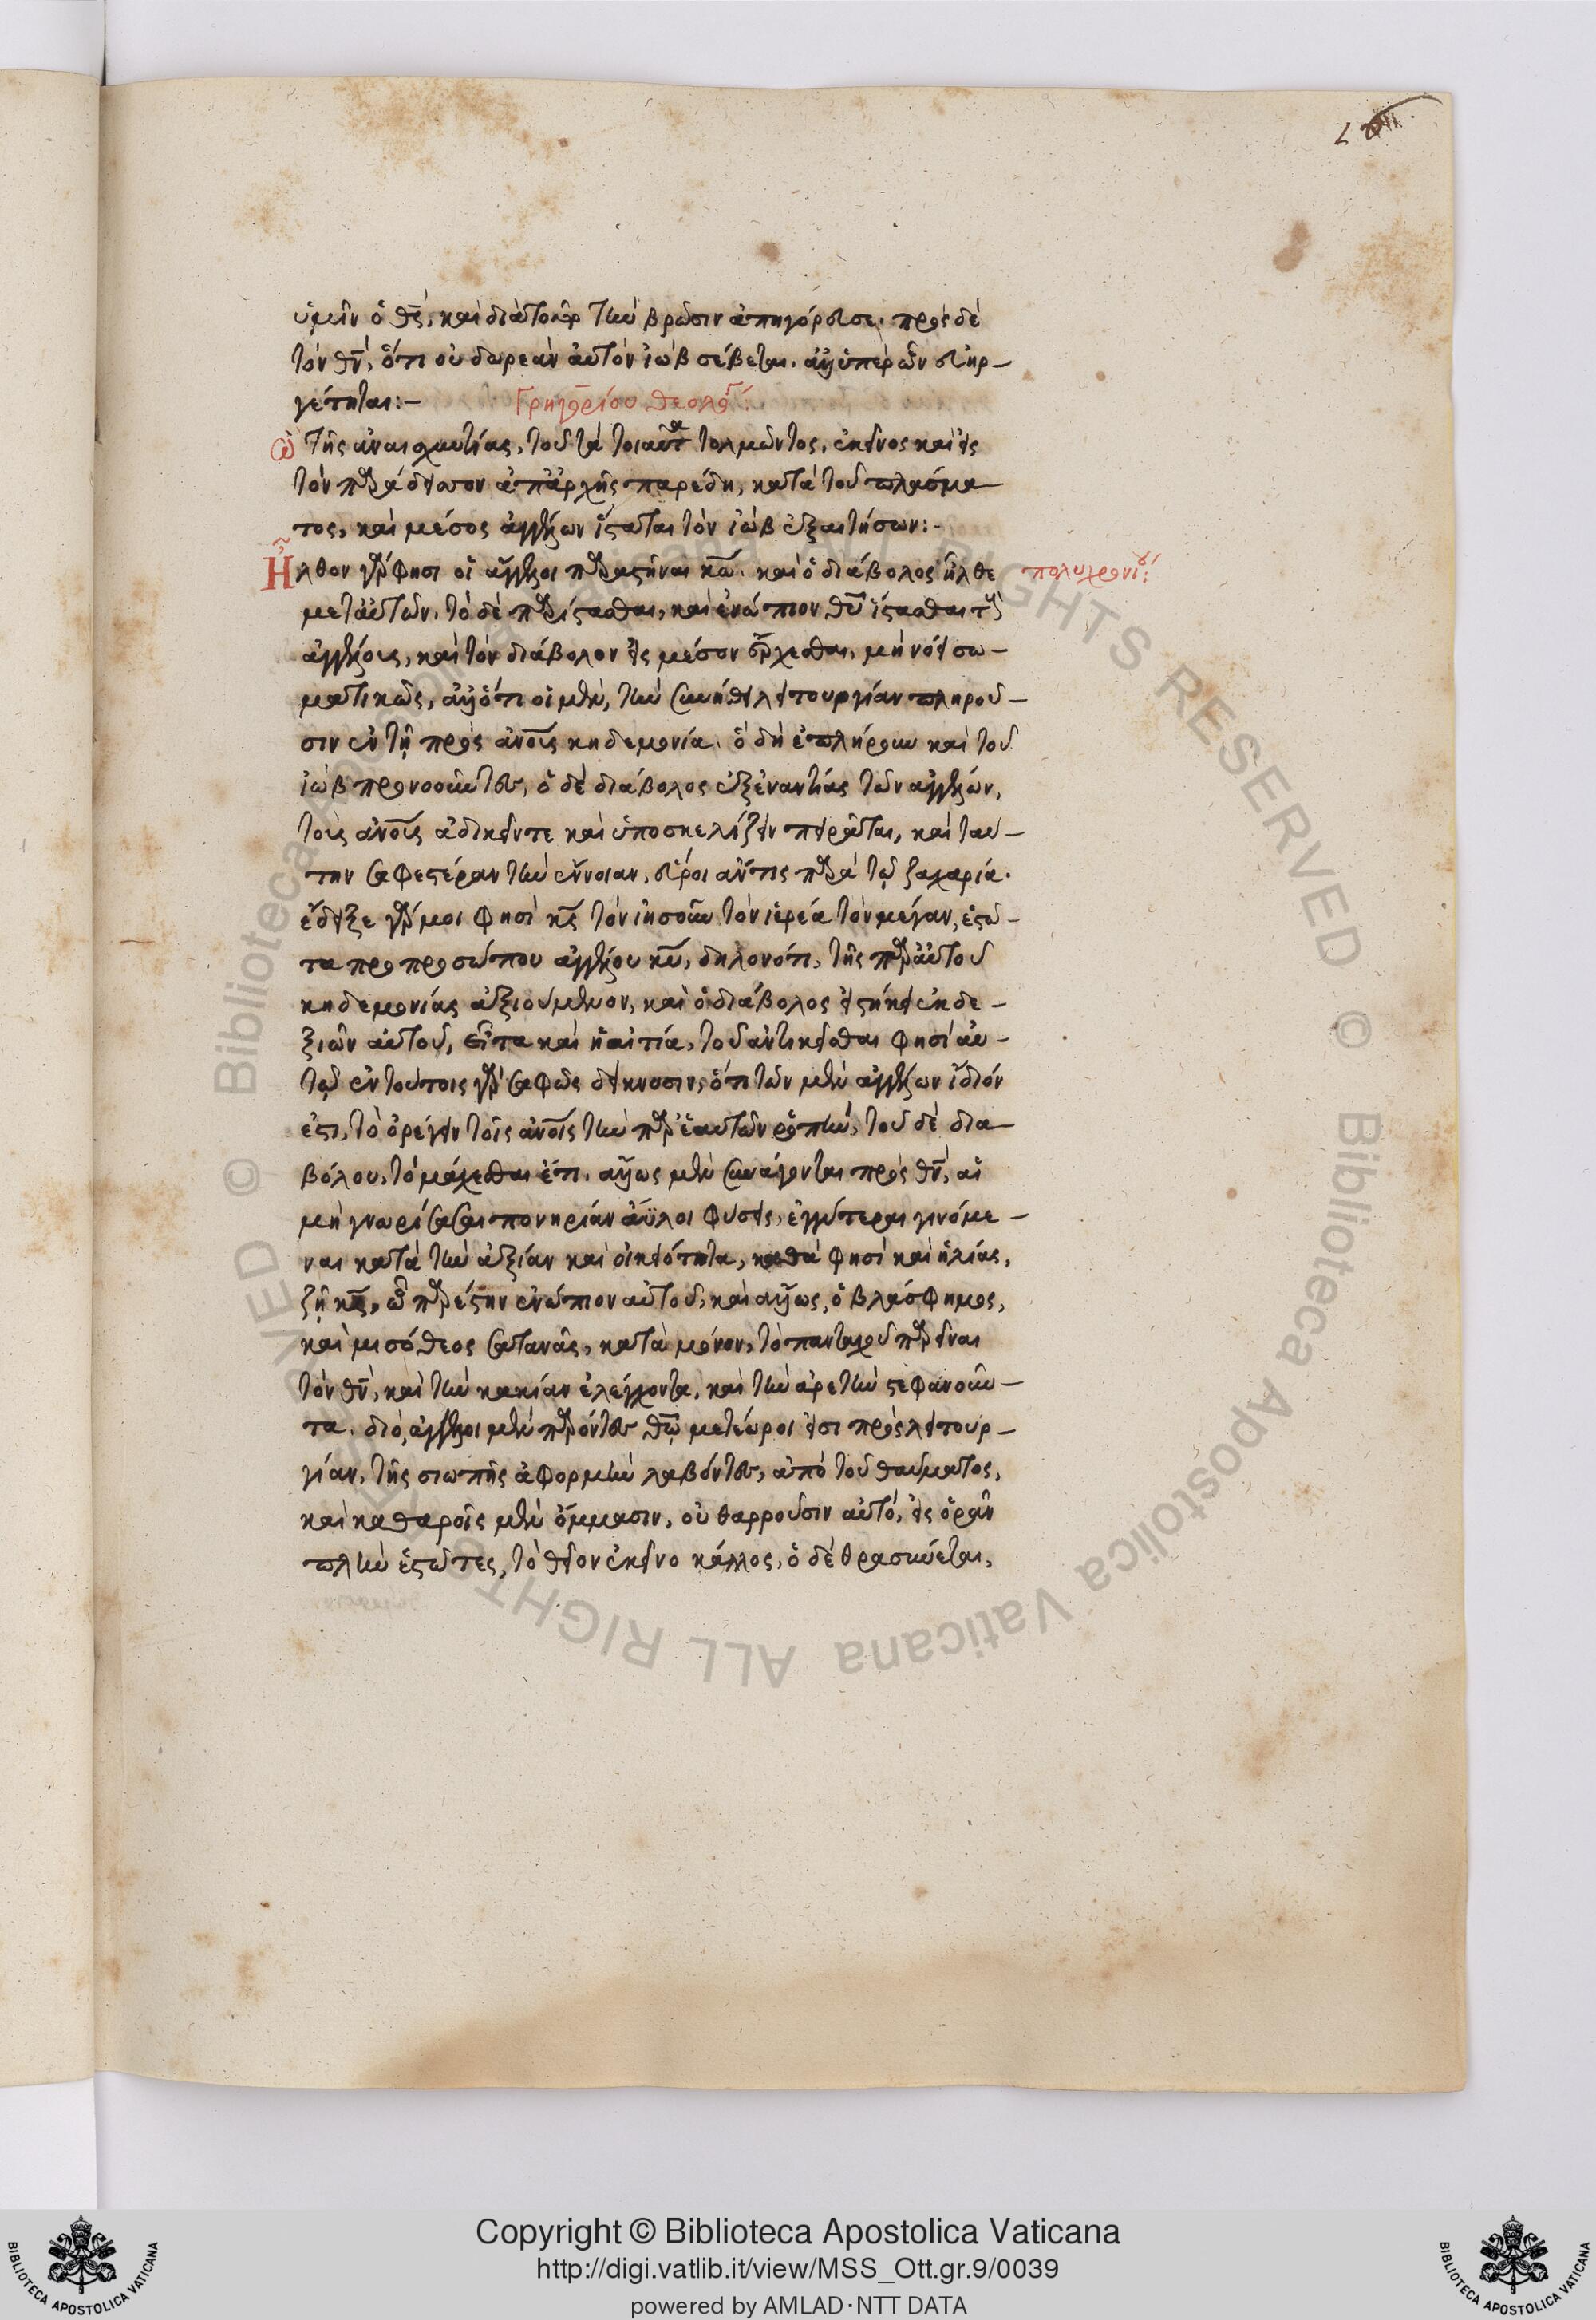 ὑμῖν ὁ θς̄, καὶ διὰ τοῦτο τὴν βρῶσιν ἀπηγόρευσε. πρὸς δὲ
τὸν θν̄, ὅτι οὐ δωρεὰν αὐτὸν ἰὼβ σέβεται. ἀλλ' ὑπὲρ ὧν εὐηρ-
γέτηται:-
Γρηγορίου θεολό͞γ:
ὢ τῆς ἀναισχυντίας, τοῦ τὰ τοιαῦτα τολμῶντος, ἐκεῖνος καὶ εἰς
τὸν παράδεισον ἀπ' ἀρχῆς παρέδυ, κατὰ τοῦ πλάσμα-
τος, καὶ μέσος ἀγγέλων ἵσταται τὸν ἰὼβ ἐξαιτήσων:-
Ἦλθον γάρ φησι οἱ ἄγγελοι παραστῆναι κω̄. καὶ ὁ διάβολος ἦλθε
πολυχρονίου:
μετ' αὐτῶν. τὸ δὲ παρίστασθαι, καὶ ἐνώπιον θῡ ἵστασθαι τοὺς
ἀγγέλους, καὶ τὸν διάβολον εἰς μέσον ἔρχεσθαι, μὴ νόει σω-
ματικῶς, ἀλλ' ὅτι οἱ μὲν, τὴν συνήθη λειτουργίαν πληροῦ-
σιν ἐν τῇ πρὸς ἀνο̄υς κηδεμονία. ὃ δὴ ἐπλήρουν καὶ τοῦ
ἰὼβ προνοοῦντες, ὁ δὲ διάβολος ἐξεναντίας τῶν ἀγγέλων,
τοὺς ἀνο̄υς ἀδικεῖν τε καὶ ὑποσκελίζειν πειρᾶται, καὶ ταύ-
την σαφεστέραν τὴν ἔννοιαν, εὕροι ἄν τις παρὰ τῷ ζαχαρία.
ἔδειξε γάρ μοι φησὶ κς̄ τὸν ἰησοῦν τὸν ἱερέα τὸν μέγαν, ἑστῶ-
τα προ προσώπου ἀγγέλου κῡ, δηλονότι, τῆς παρ' αὐτοῦ
κηδεμονίας ἀξιούμενον, καὶ ὁ διάβολος εἱστήκει ἐκ δε-
ξιῶν αὐτοῦ, εἶτα καὶ ἡ αἰτία, τοῦ ἀντικεῖσθαι φησὶ αὐ-
τῷ ἐν τούτοις γὰρ σαφῶς δείκνυσιν, ὅτι τῶν μὲν ἀγγέλων ἴδιόν
ἐστι, τὸ ὀρέγειν τοῖς ἀνο̄ις τὴν παρ' ἑαυτῶν ῥοπὴν, τοῦ δὲ δια-
βόλου, τὸ μάχεσθαι ἔτι. ἄλλως μὲν συνάγονται πρὸς θν̄, αἱ
μὴ γνωρίσασαι πονηρίαν ἄϋλοι φύσεις, ἐγγύτεραι γινόμε-
ναι κατὰ τὴν ἀξίαν καὶ οἰκειότητα, καθά φησὶ καὶ ἡλίας,
ζῆ κς̄, ὧ παρέστην ἐνώπιον αὐτοῦ, καὶ ἄλλως, ὁ βλάσφημος,
καὶ μισόθεος σατανᾶς, κατὰ μόνον, τὸ πανταχοῦ παρεῖναι
τὸν θν̄, καὶ τὴν κακίαν ἐλέγχοντα, καὶ τὴν ἀρετὴν στεφανοῦν-
τα. διὸ, ἄγγελοι μὲν παρόντες θω̄ μετέωροι εἰσὶ πρὸς λειτουρ-
γίαν, τῆς σιωπῆς ἀφορμὴν λαβόντες, ἀπὸ τοῦ θαύματος,
καὶ καθαροῖς μὲν ὄμμασιν, οὐ θαρροῦσιν αὐτό, εἰς ὁρᾶν
πλὴν ἑστῶτες, τὸ θεῖον ἐκεῖνο κάλλος, ὁ δὲ θρασύνεται,
Copyright © Biblioteca Apostolica Vaticana
http://digi.vatlib.it/view/MSS_Ott.gr.9/0039
powered by AMLAD·NTT DATA